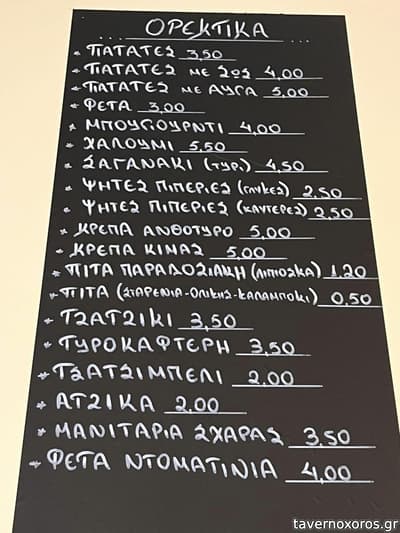 ΟΡΕΚΤΙΚΑ
* ΠΑΤΑΤΕΣ 3,50
* ΠΑΤΑΤΕΣ ΜΕ ΣΩΣ 4,00
* ΠΑΤΑΤΕΣ ΜΕ ΑΥΓΑ 5,00
* ΦΕΤΑ 3,00
* ΜΠΟΥΓΙΟΥΡΝΤΙ 4,00
* ΧΑΛΟΥΜΙ 5,50
* ΣΑΓΑΝΑΚΙ (ΤΥΡ.) 4,50
* ΨΗΤΕΣ ΠΙΠΕΡΙΕΣ (ΓΛΥΚΕΣ) 2,50
* ΨΗΤΕΣ ΠΙΠΕΡΙΕΣ (ΚΑΥΤΕΡΕΣ) 2,50
* ΚΡΕΠΑ ΑΝΘΟΤΥΡΟ 5,00
* ΚΡΕΠΑ ΚΙΜΑΣ 5,00
* ΠΙΤΑ ΠΑΡΑΔΟΣΙΑΚΗ (ΛΙΠΙΟΣΚΑ) 1,20
* ΠΙΤΑ (ΣΤΑΡΕΝΙΑ-ΟΛΙΚΗΣ-ΚΑΛΑΜΠΟΚΙ) 0,50
* ΤΖΑΤΖΙΚΙ 3,50
* ΤΥΡΟΚΑΦΤΕΡΗ 3,50
* ΤΣΑΤΣΙΜΠΕΛΙ 2,00
* ΑΤΖΙΚΑ 2,00
* ΜΑΝΙΤΑΡΙΑ ΣΧΑΡΑΣ 3,50
* ΦΕΤΑ ΝΤΟΜΑΤΙΝΙΑ 4,00
tavernoxoros.gr